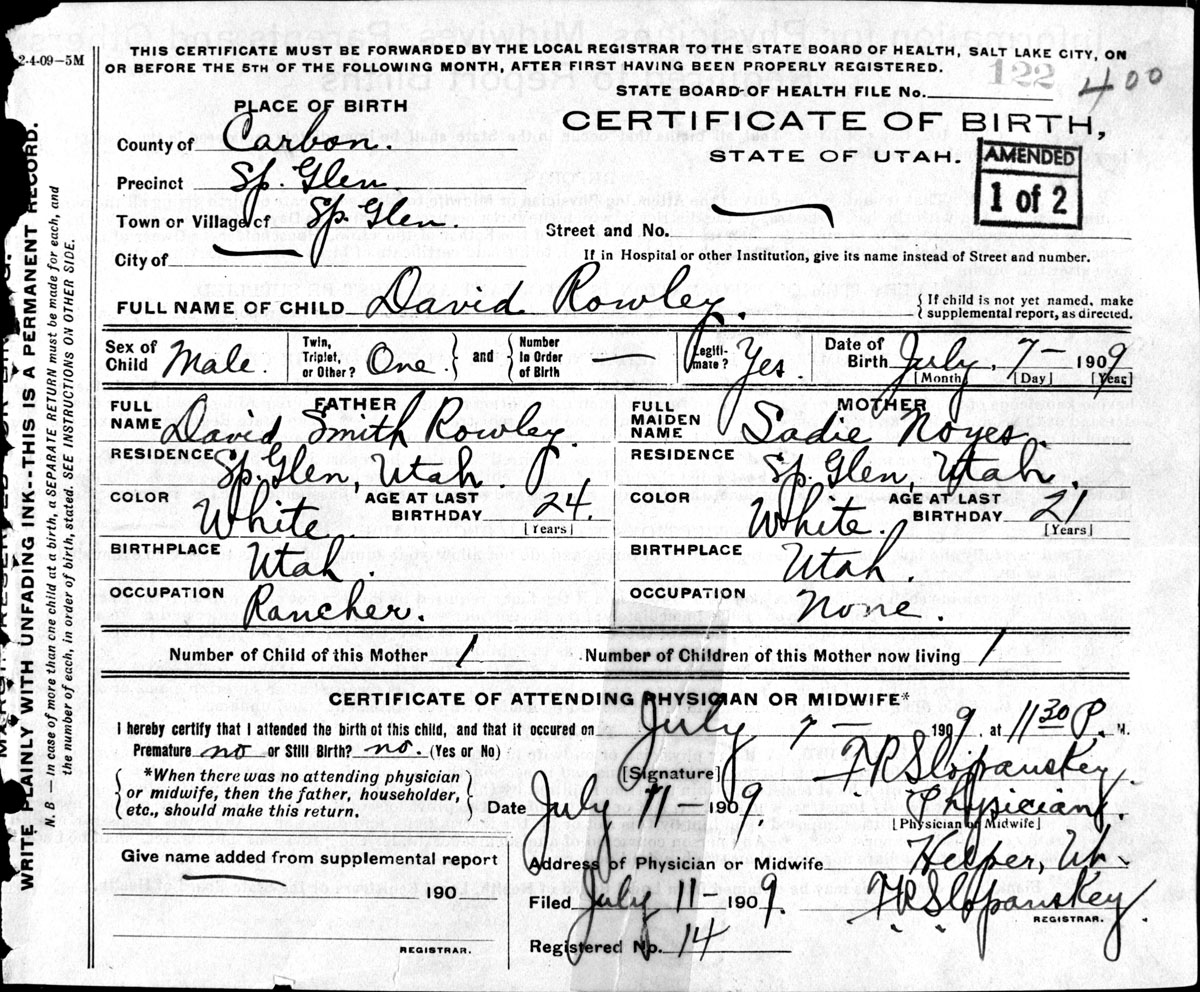 2-4-09—5M
THIS CERTIFICATE MUST BE FORWARDED BY THE LOCAL REGISTRAR TO THE STATE BOARD OF HEALTH, SALT LAKE CITY, ON
OR BEFORE THE 5TH OF THE FOLLOWING MONTH, AFTER FIRST HAVING BEEN PROPERLY REGISTERED.
122
400
STATE BOARD OF HEALTH FILE No.
PLACE OF BIRTH
CERTIFICATE OF BIRTH,
STATE OF UTAH.
AMENDED
1 of 2
County of Carbon.
Precinct Sp. Glen.
Town or Village of Sp. Glen.
Street and No. —
City of —
If in Hospital or other Institution, give its name instead of Street and number.
FULL NAME OF CHILD David Rowley.
{ If child is not yet named, make
supplemental report, as directed.
Sex of Child Male. Twin, Triplet, or Other? One. } and { Number in Order of Birth — Legitimate? Yes. Date of Birth July, 7 — 1909
[Month] [Day] [Year]
FATHER
FULL NAME David Smith Rowley.
RESIDENCE Sp. Glen, Utah.
COLOR White. AGE AT LAST BIRTHDAY 24
[Years]
BIRTHPLACE Utah.
OCCUPATION Rancher.
MOTHER
FULL MAIDEN NAME Sadie Noyes.
RESIDENCE Sp. Glen, Utah.
COLOR White. AGE AT LAST BIRTHDAY 21
[Years]
BIRTHPLACE Utah.
OCCUPATION None.
Number of Child of this Mother 1 Number of Children of this Mother now living 1
CERTIFICATE OF ATTENDING PHYSICIAN OR MIDWIFE*
I hereby certify that I attended the birth of this child, and that it occured on July 7 — 1909, at 11 30 P. M.
Premature no or Still Birth? no. (Yes or No)
[Signature] F R Slopanskey.
{ *When there was no attending physician
or midwife, then the father, householder,
etc., should make this return. }
Date July 11 — 1909. Physician.
[Physician or Midwife]
Give name added from supplemental report
— 190
REGISTRAR.
Address of Physician or Midwife Helper, Ut.
Filed July 11 — 1909. F R Slopanskey.
REGISTRAR.
Registered No. 14
WRITE PLAINLY WITH UNFADING INK--THIS IS A PERMANENT RECORD.
N. B.—In case of more than one child at a birth, a SEPARATE RETURN must be made for each, and
the number of each, in order of birth, stated. SEE INSTRUCTIONS ON OTHER SIDE.